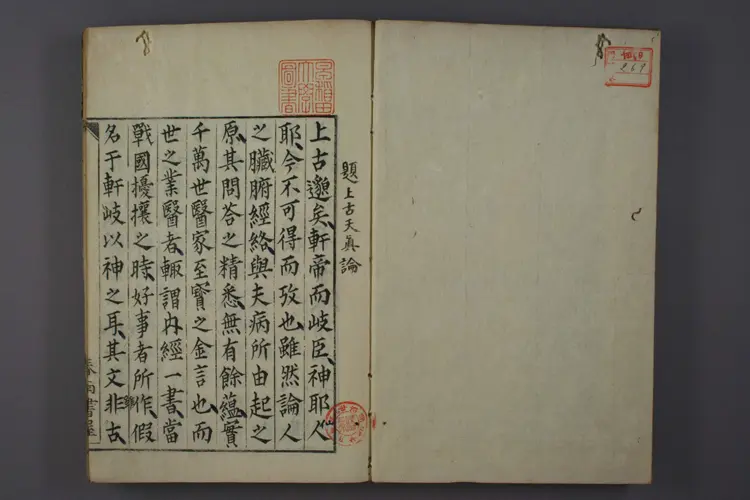 題上古天眞論
上古邈矣軒帝而岐臣神耶人
耶今不可得而攷也雖然論人
之臟腑經絡與夫病所由起之
原其問答之精悉無有餘蘊實
千萬世醫家至寶之金言也而
世之業醫者輙謂內經一書當
戰國擾攘之時好事者所作假
名于軒岐以神之耳其文非古
早稲田大學圖書
269